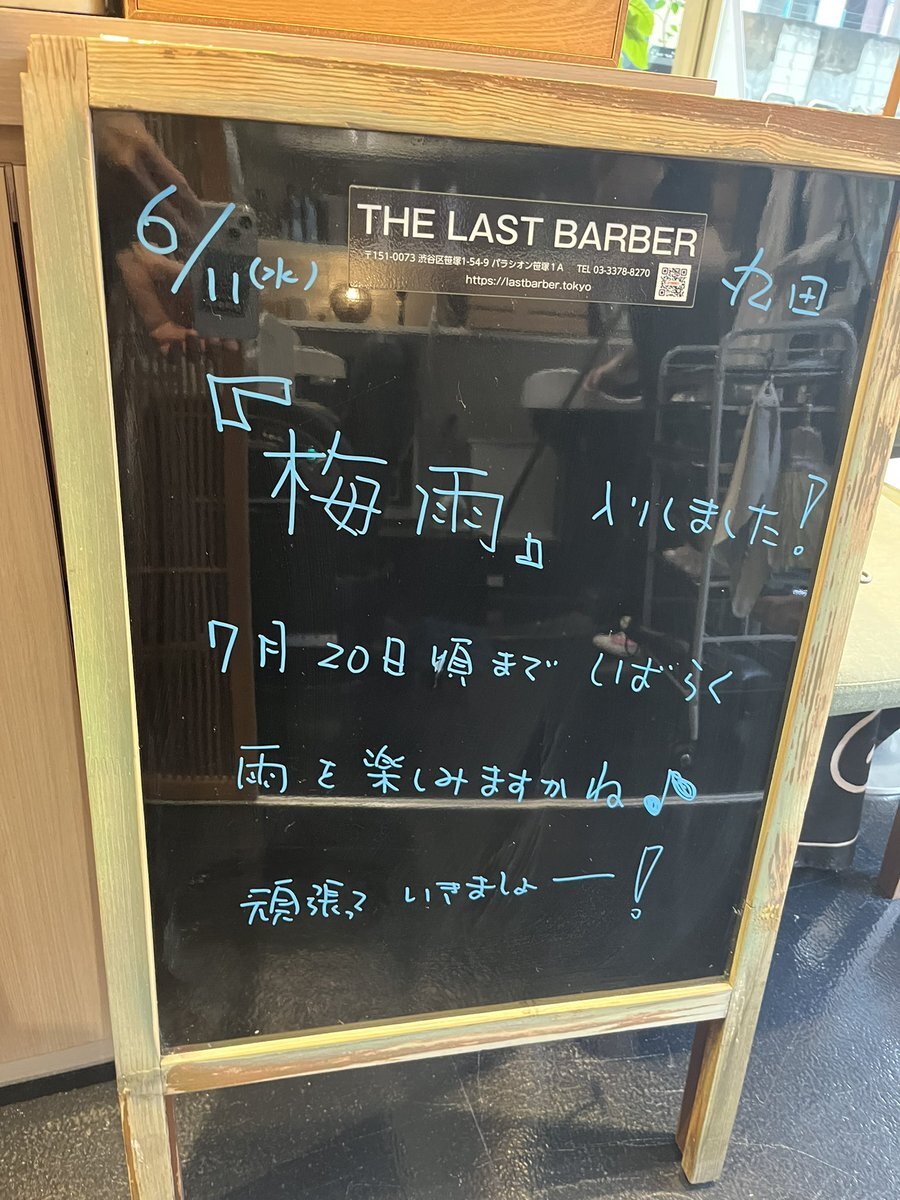 6/11(水)
THE LAST BARBER
〒151-0073 渋谷区笹塚1-54-9 パラシオン笹塚1A TEL 03-3378-8270
https://lastbarber.tokyo
丸田
『梅雨』入りしました!
7月20日頃まで しばらく
雨を楽しみますかね♪
頑張っていきましょー!